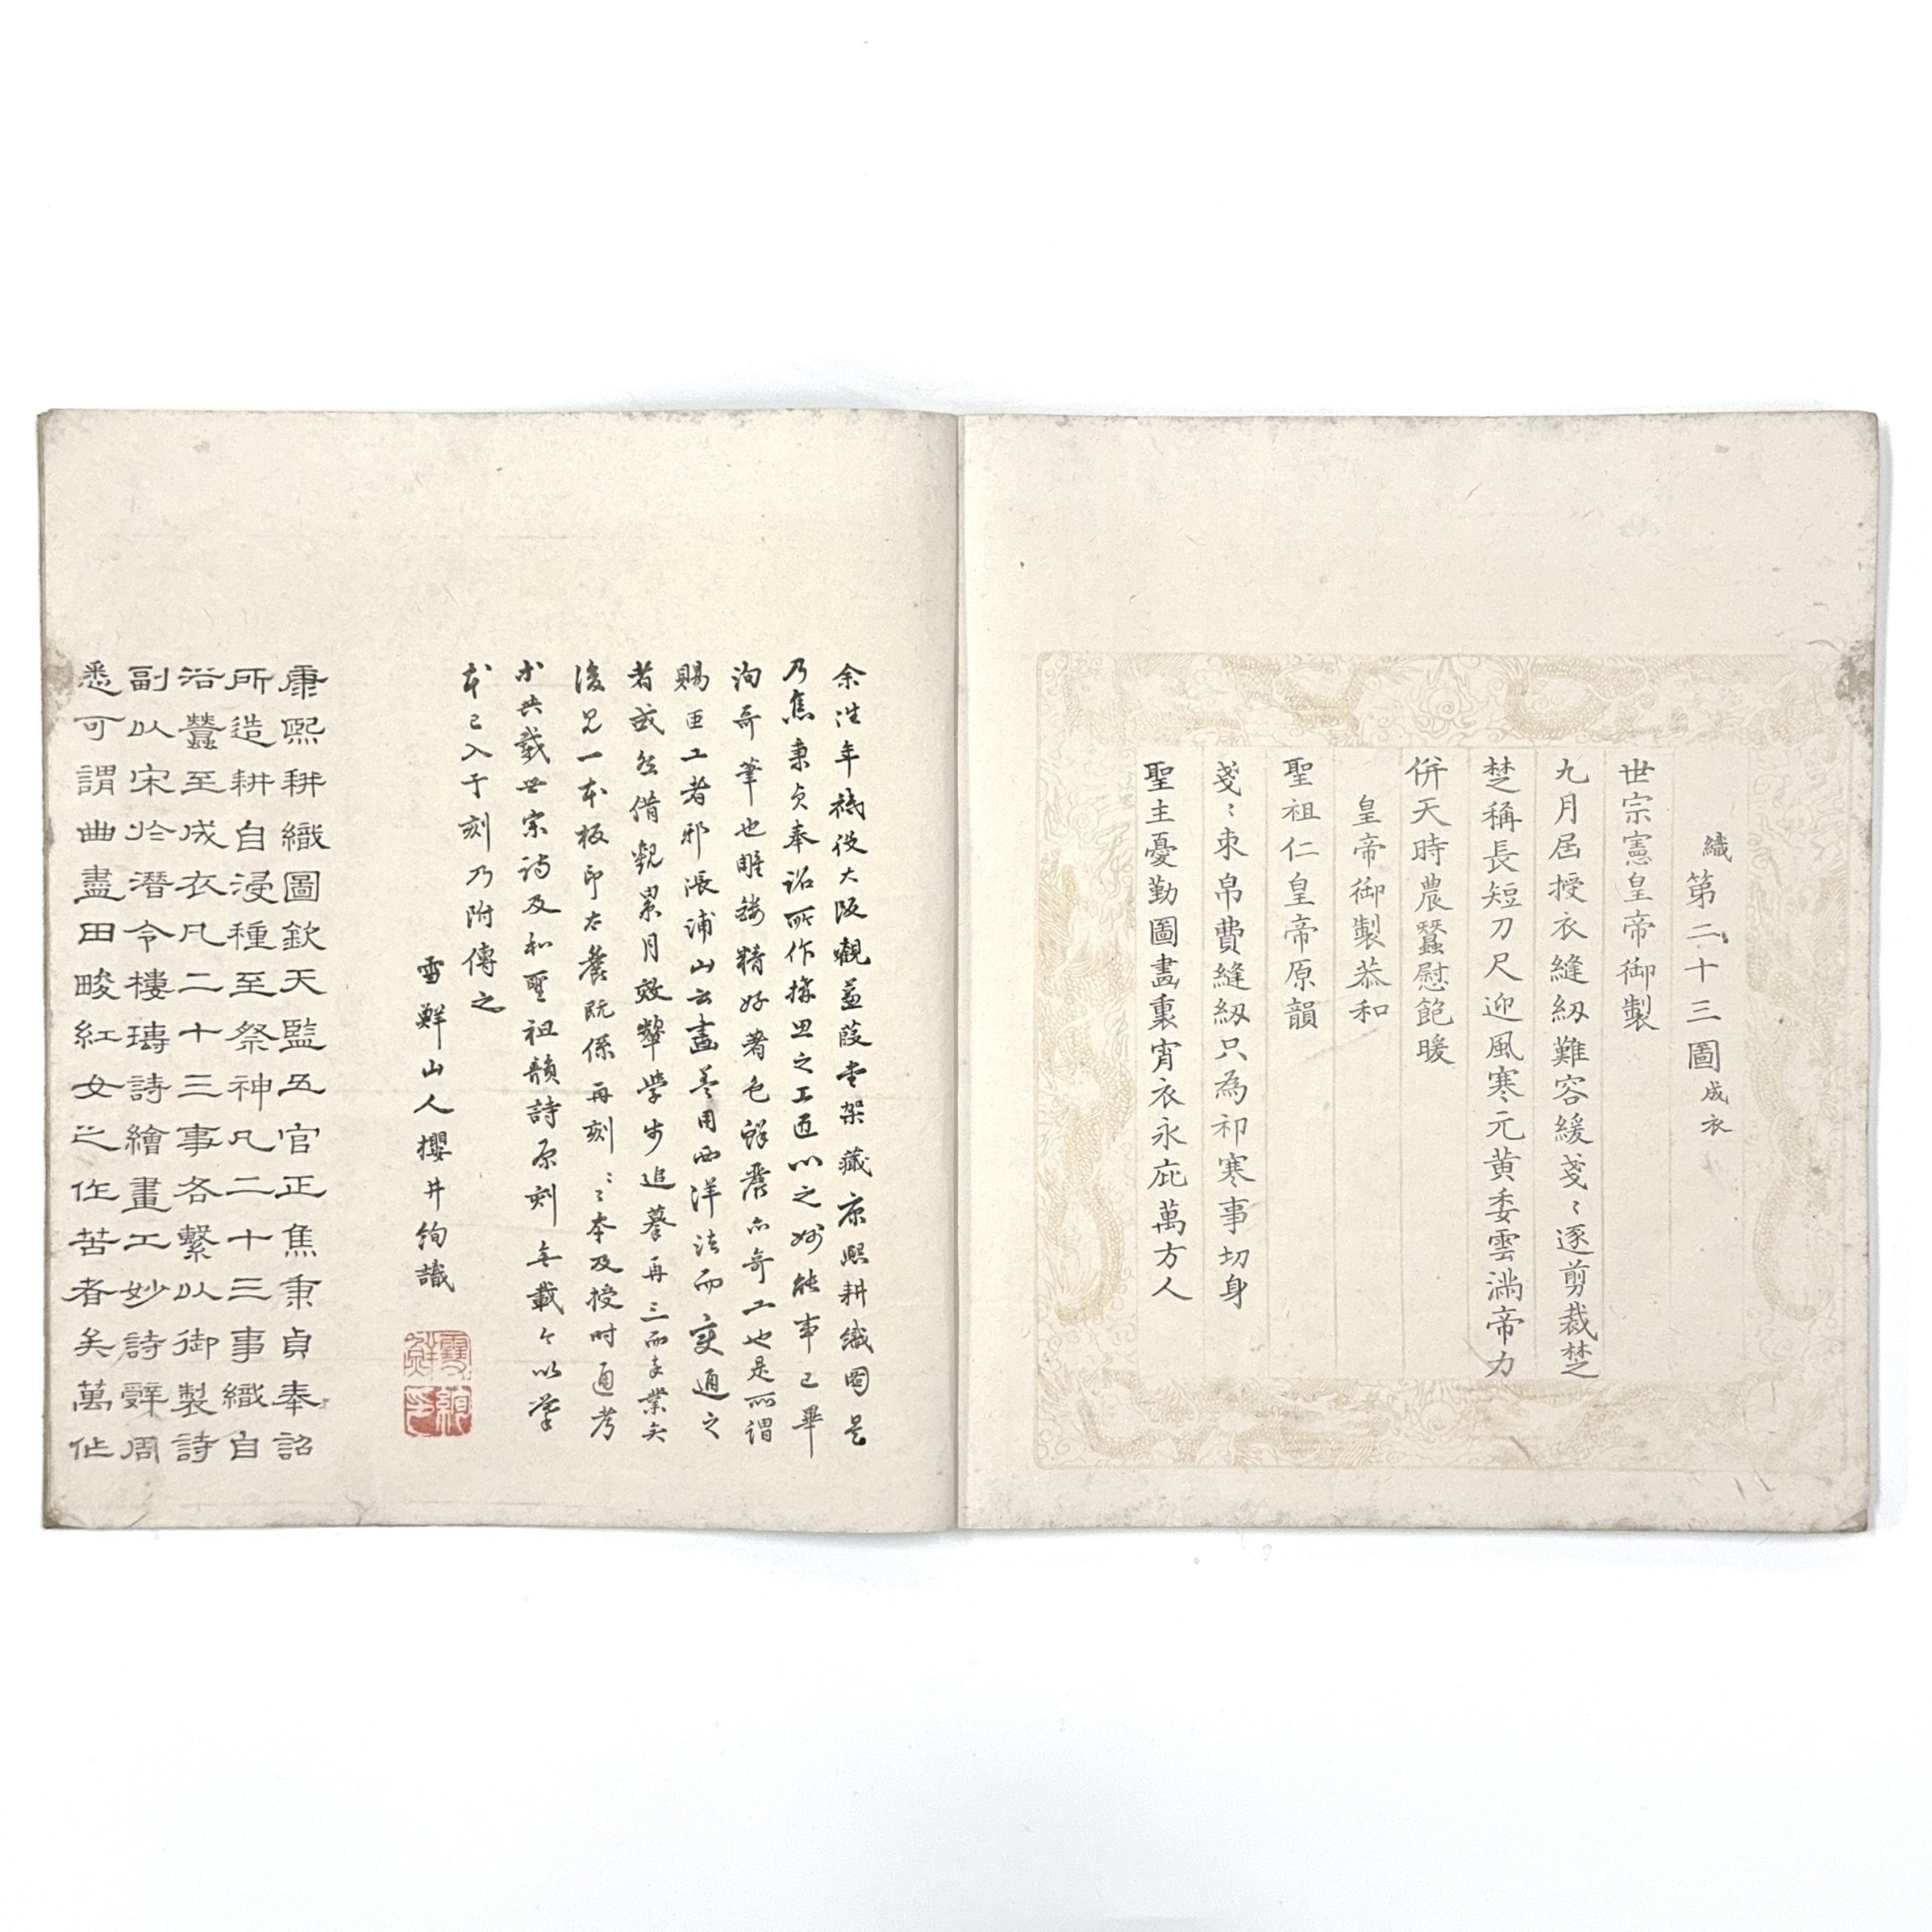 織第二十三圖成衣
世宗憲皇帝御製
九月屆授衣縫紉難容緩戔〻逐剪裁楚
楚稱長短刀尺迎風寒元黃委雲滿帝力
併天時農蠶慰飽暖
皇帝御製恭和
聖祖仁皇帝原韻
戔〻束帛費縫紉只為祁寒事切身
聖主憂勤圖畫裏宵衣永庇萬方人
余往年祗役大阪觀蒹葭堂架藏康熙耕織圖是
乃焦秉貞奉詔所作搆思之工逎以之妙能事已畢
洵奇筆也雕鏤精好著色鮮麗亦奇工也是所謂
賜亜工者邪張浦山云畫蓋用西洋法而變通之
者哉然借觀累月效顰學步追摹再三而卒業矣
後見一本板印太麤既係再刻〻本及授時通考
共載世宗詩及和聖祖韻詩原刻無載今以筆
本已入于刻乃附傳之
雪鮮山人櫻井絢識
康熙耕織圖欽天監五官正焦秉貞奉詔
所造耕自浸種至祭神凡二十三事織自
浴蠶至成衣凡二十三事各繫以御製詩
副以宋於潛令樓璹詩繪畫工妙詩辭周
悉可謂曲盡田畯紅女之作苦者矣萬作